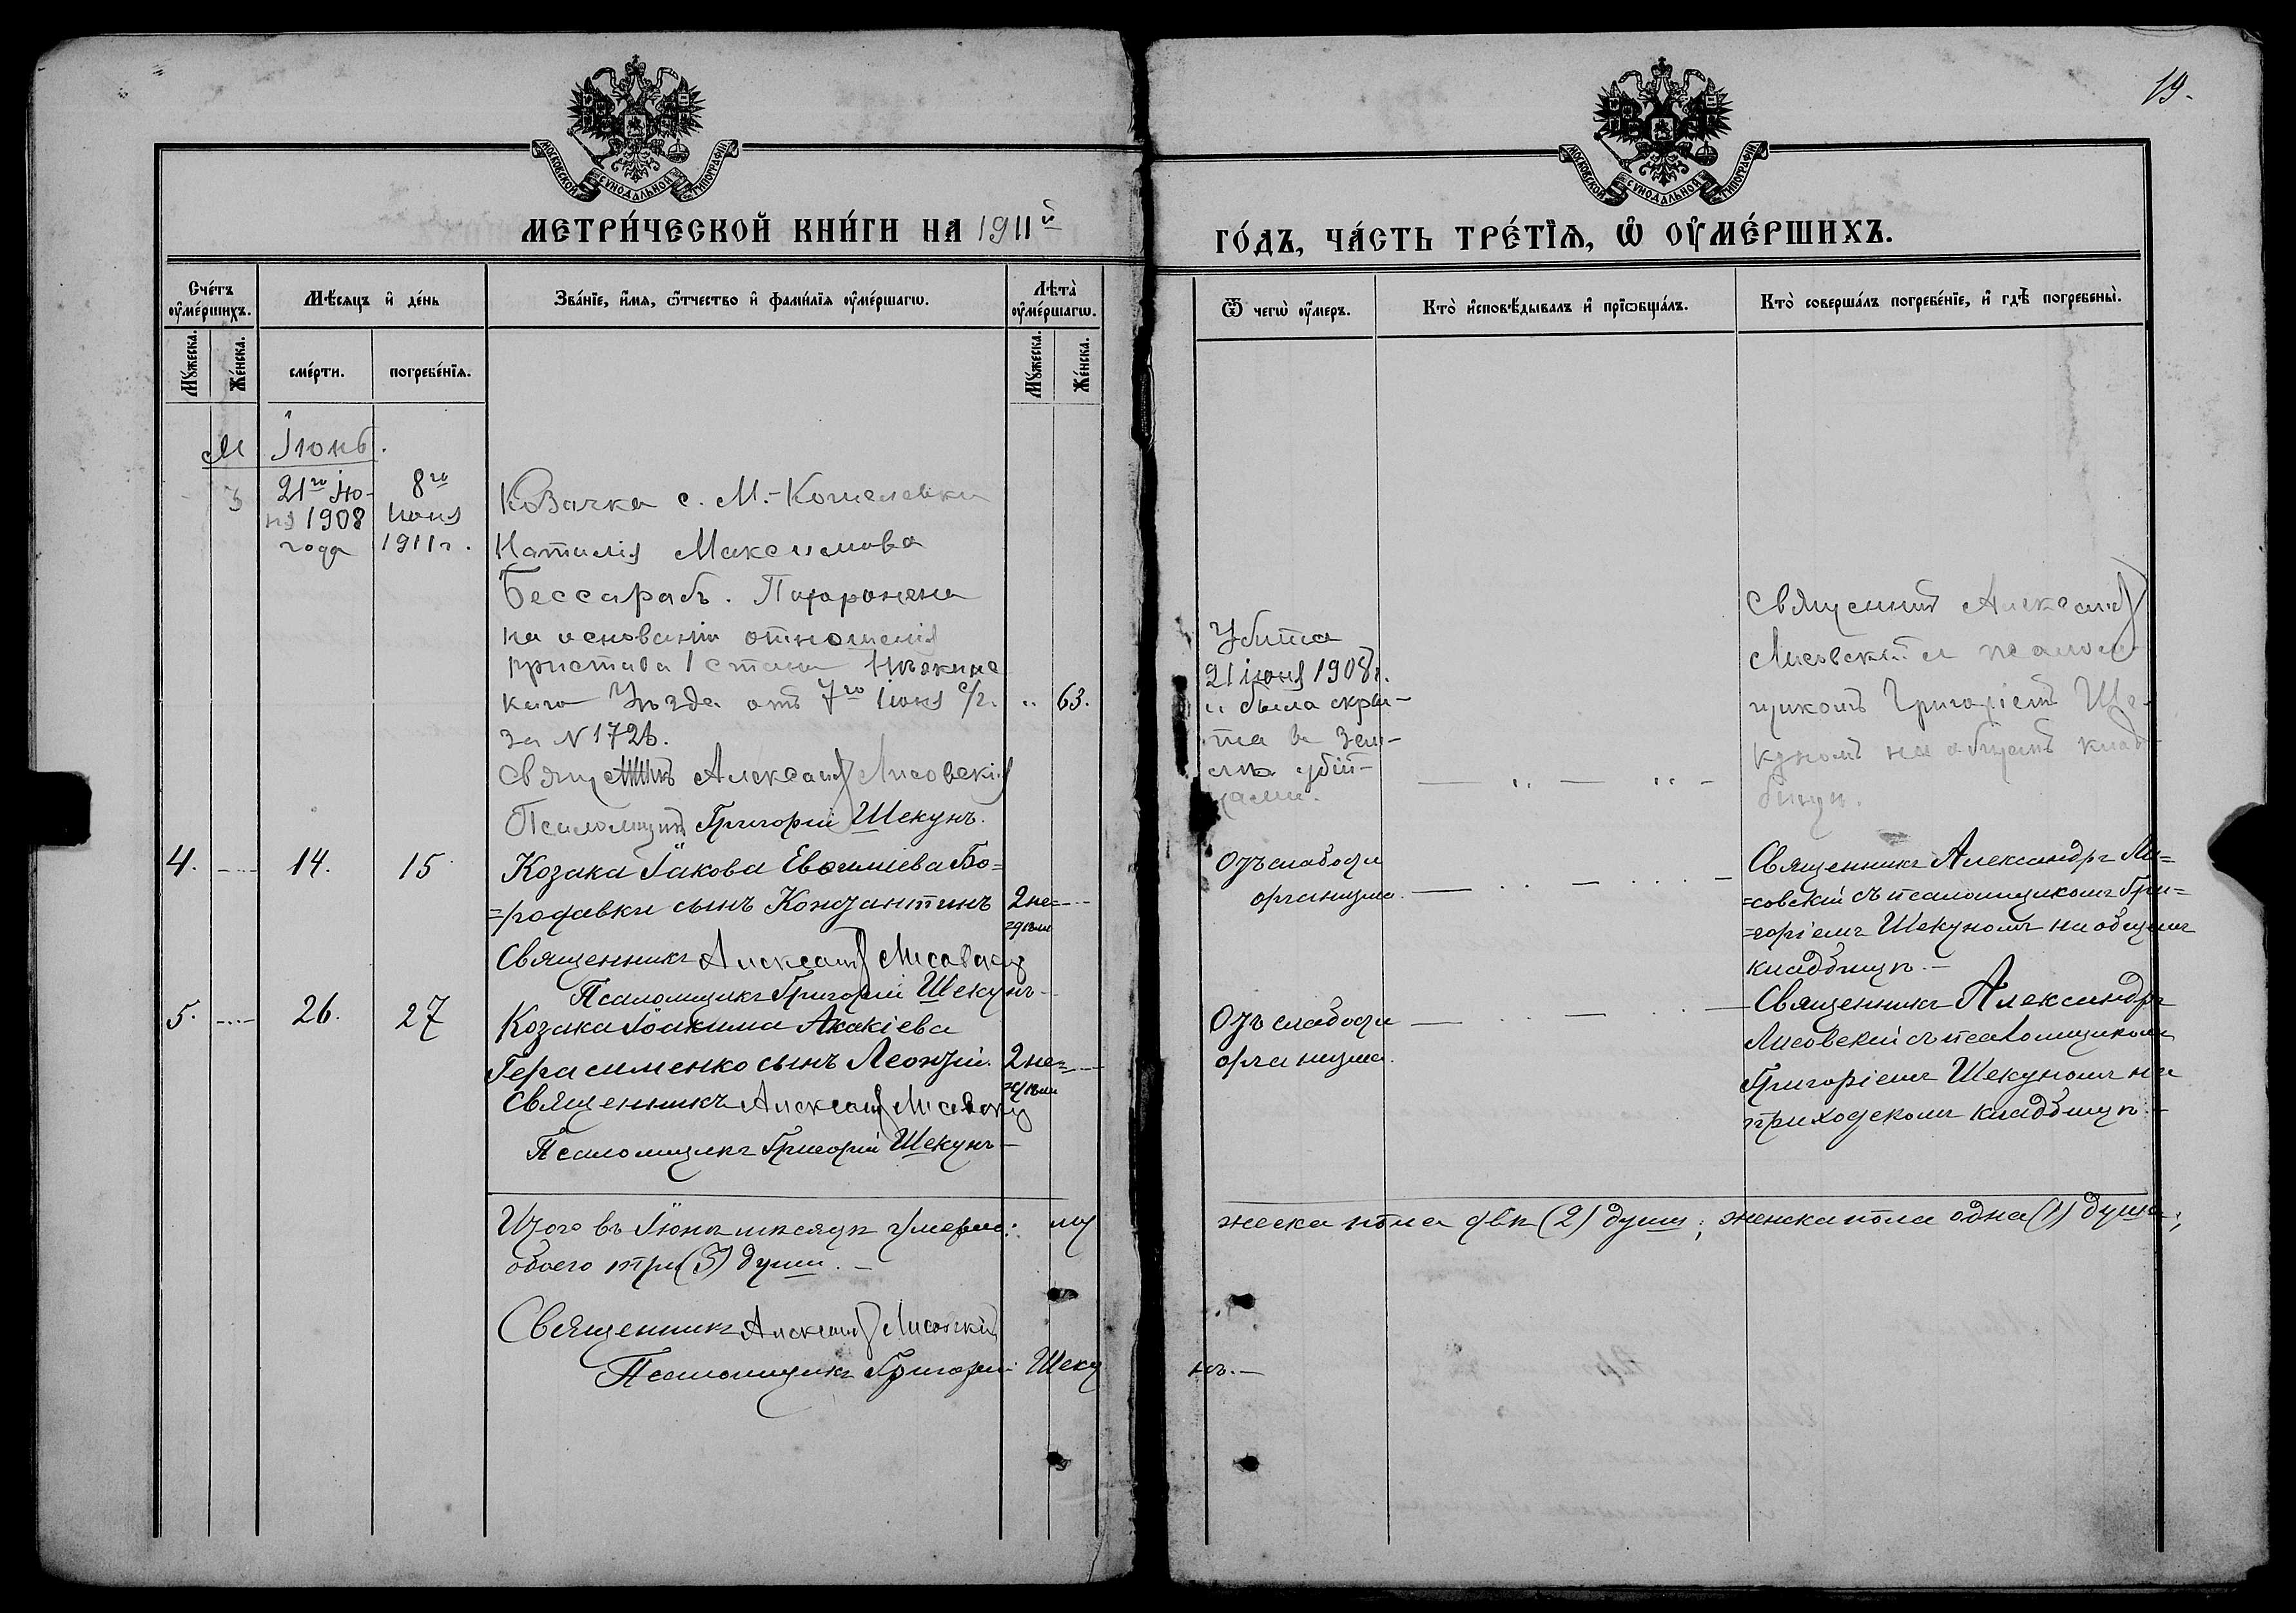 19.
МОСКОВСКОЙ СѴНОДАЛЬНОЙ ТИПОГРАФІИ
МОСКОВСКОЙ СѴНОДАЛЬНОЙ ТИПОГРАФІИ
МЕТРИ́ЧЕСКОЙ КНИ́ГИ НА 1911й
ГО́ДЪ, ЧА́СТЬ ТРЕ́ТІѦ, Ѡ҆ ОУ҆МЕ́РШИХЪ.
Сче́тъ оу҆ме́ршихъ.
Мѣ́сяцъ и҆ де́нь
Зва́ніе, и҆́мя, ѻ҆́тчество и҆ фами́лія оу҆ме́ршагѡ.
Лѣта̀ оу҆ме́ршагѡ.
Ѿ чегѡ̀ оу҆́меръ.
Кто̀ и҆сповѣ́дывалъ и҆ прїѡбща́лъ.
Кто̀ соверша́лъ погребе́ніе, и҆ гдѣ̀ погребены̀.
Му́жеска.
Же́нска.
сме́рти.
погребе́нія.
Му́жеска.
Же́нска.
М Іюнь.
3
21го Ію-
ня 1908
года
8го
Іюня
1911 г.
Козачка с. М.-Кошелевки
Наталія Максимова
Бессарабъ. Похоронена
на основаніи отношенія
пристава 1 стана Нѣжинс
каго Уѣзда отъ 7го Іюня с/г.
за N 1726.
Священникъ Александръ Лисовскій
Псаломщикъ Григорій Шекунъ.
" 63.
Убита
21 іюня 1908 г.
и была скры-
та въ зем-
лѣ убій-
цами.
Священникъ Александръ
Лисовскій и псалом-
щикомъ Григоріемъ Ше-
куномъ на общемъ клад-
бищѣ.
4.
14.
15
Козака Іакова Евѳиміева Бо=
=родавки сынъ Констинтинъ
2 не=
=дѣли
Священникъ Александръ Лисовскій
Псаломщикъ Григорій Шекунъ
Отъ слабости
организма.
Священникъ Александръ Ли=
=совскій съ псаломщикомъ Гри=
=горіемъ Шекуномъ на общемъ
кладбищѣ.-
5.
26.
27
Козака Іоакима Акакіева
Герасименко сынъ Леонтій.
2 не=
=дѣли
Священникъ Александръ Лисовскій
Псаломщикъ Григорій Шекунъ-
Отъ слабости
организма.
Священникъ Александръ
Лисовскій съ псаломщикомъ
Григоріемъ Шекуномъ на
приходскомъ кладбищѣ.-
Итого въ Іюнѣ мѣсяцѣ умерло: му
жеска пола двѣ (2) души; женска пола одна (1) душа;
обоего три (3) души.-
Священникъ Александръ Лисовскій
Псаломщикъ Григорій Шеку
нъ.-